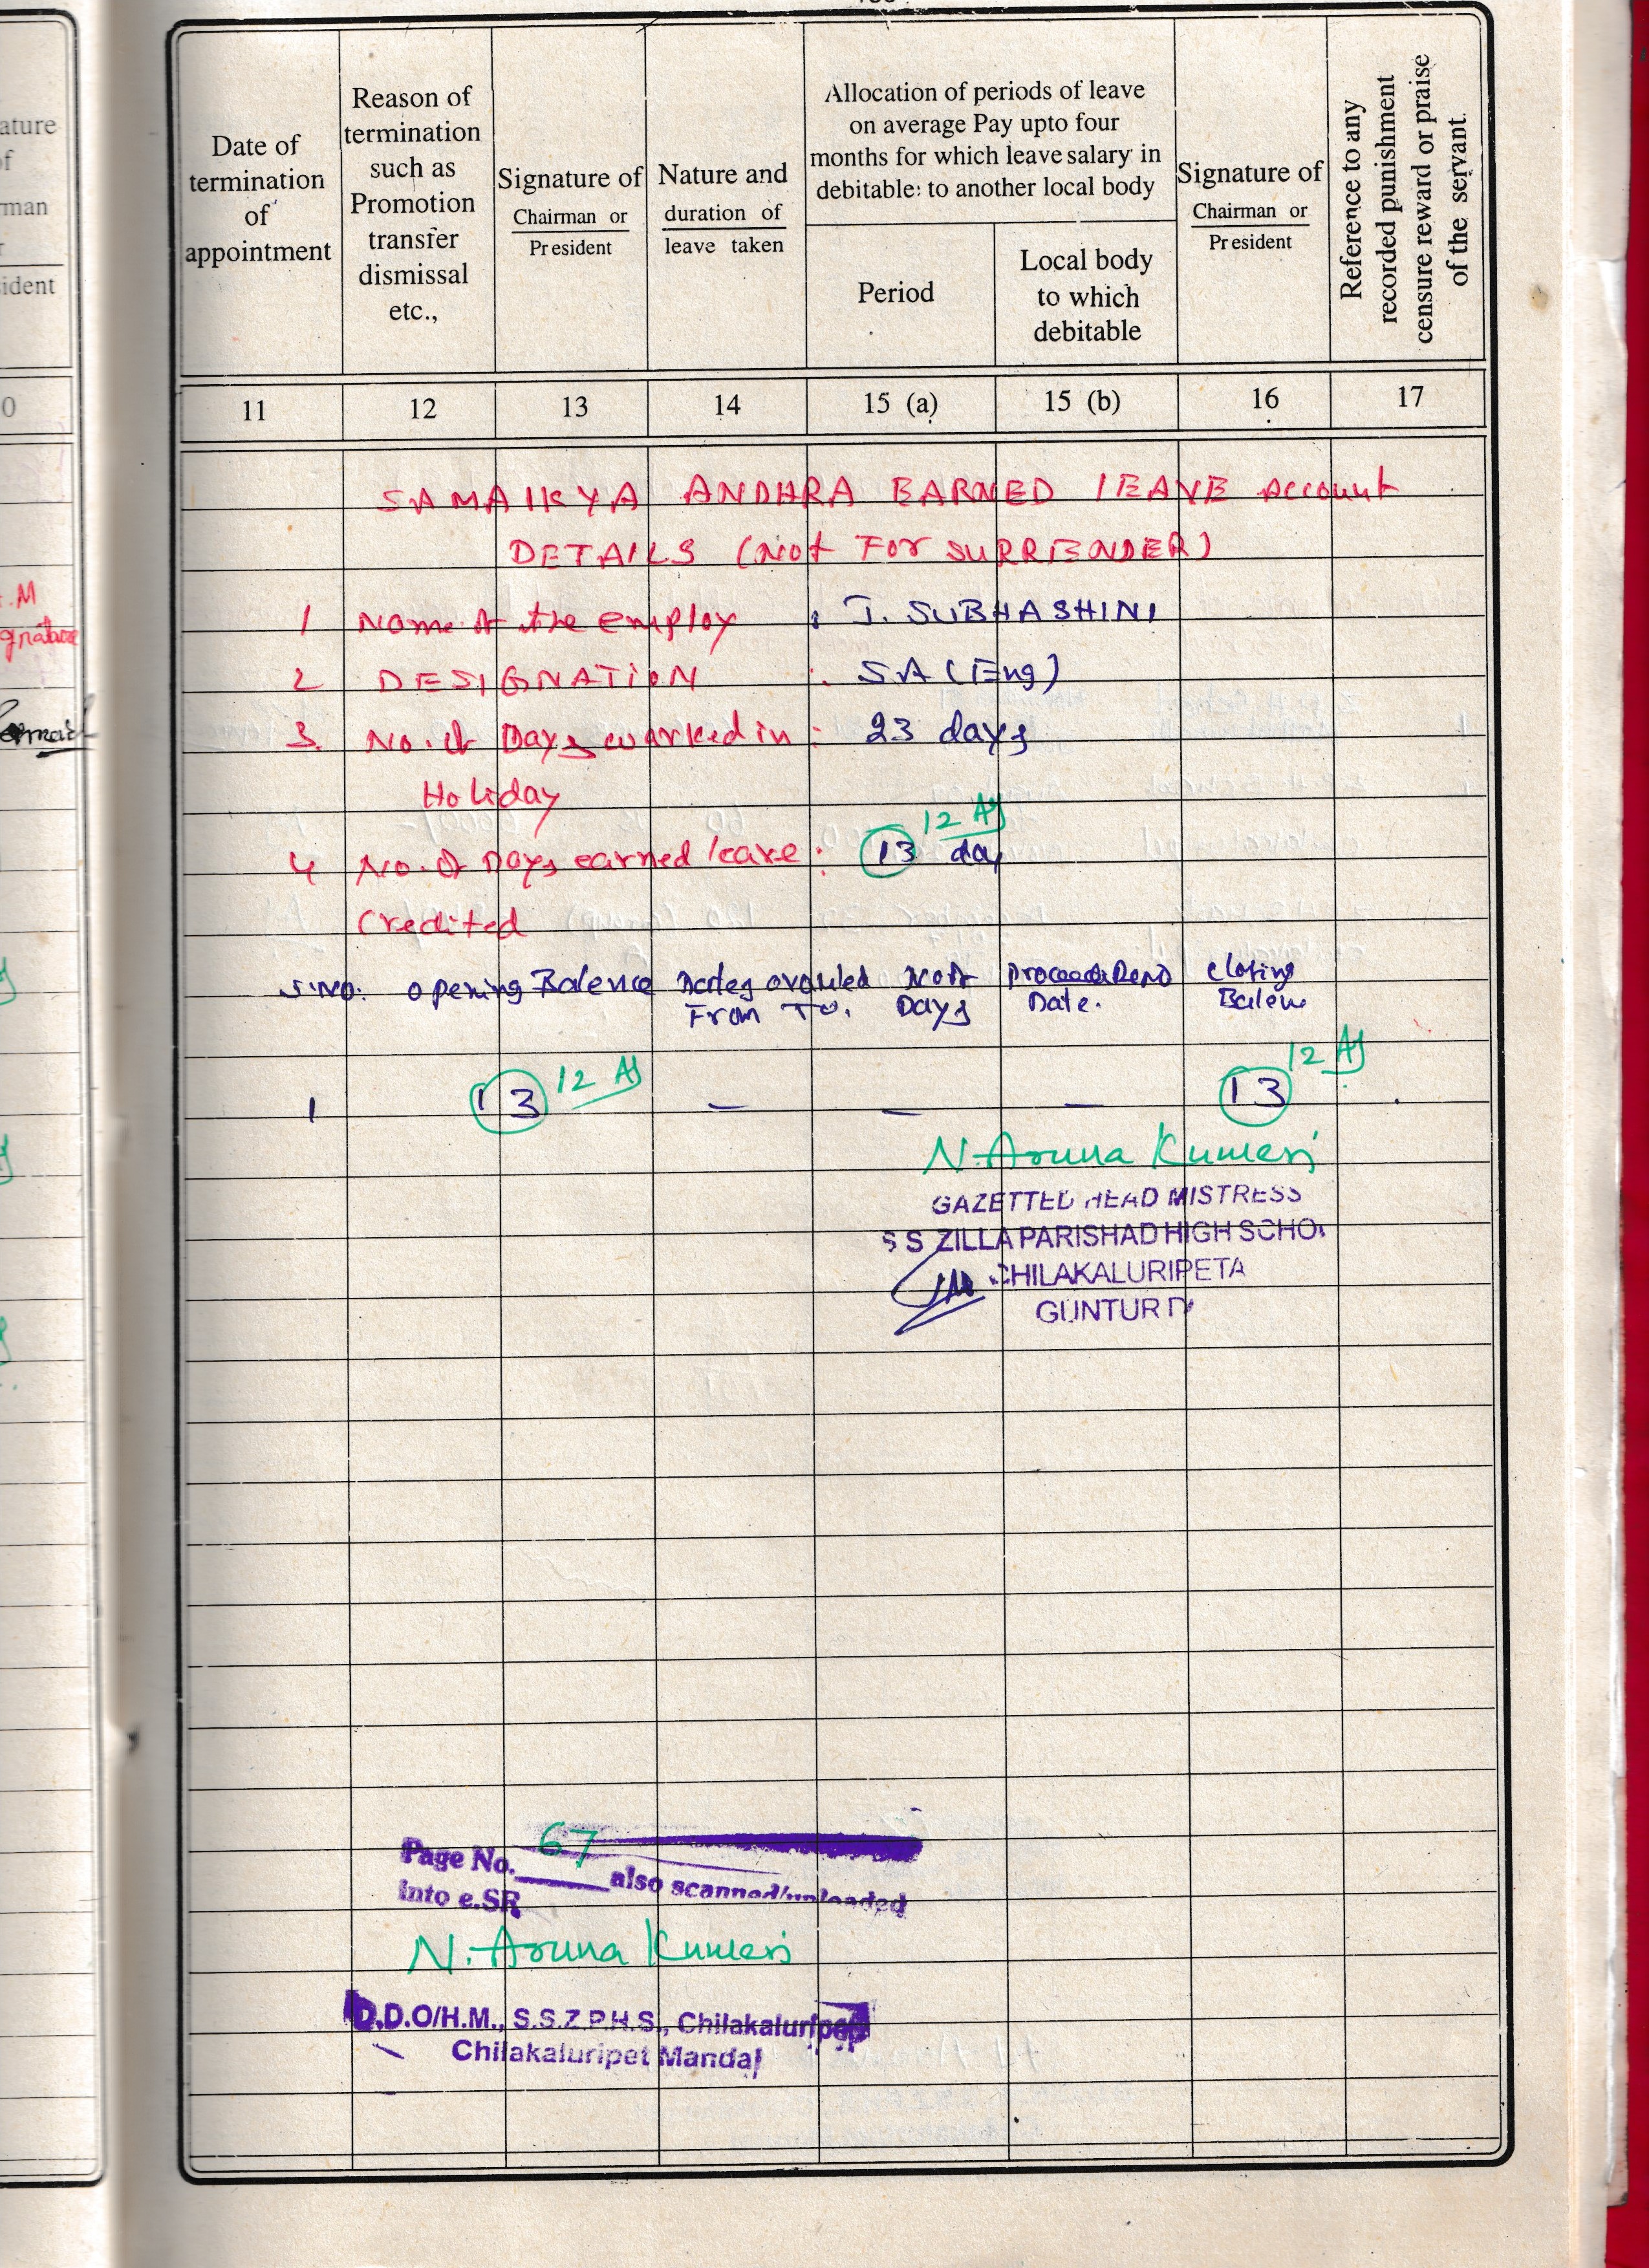 Date of
termination
of
appointment
Reason of
termination
such as
Promotion
transfer
dismissal
etc.,
Signature of
Chairman or
President
Nature and
duration of
leave taken
Allocation of periods of leave
on average Pay upto four
months for which leave salary in
debitable: to another local body
Period
Local body
to which
debitable
Signature of
Chairman or
President
Reference to any
recorded punishment
censure reward or praise
of the servant.
11 12 13 14 15 (a) 15 (b) 16 17
SAMAIKYA ANDHRA EARNED LEAVE Account
DETAILS (Not FOR SURRENDER)
1 Name of the employ : J. SUBHASHINI
2 DESIGNATION : SA (Eng)
3. No. of Days worked in : 23 days
Holiday
12
4 No. of Days earned leave : 13 day
Credited
S.NO. opening Balence Dates availed No of closing
From To. Days Date. Balen
1 13 12 – – – 13 12
N. Aruna Kumari
GAZETTED HEAD MISTRESS
S S ZILLA PARISHAD HIGH SCHO
CHILAKALURIPETA
GUNTUR D
Page No. 67 also scanned/uploaded
into e.SR
N. Aruna Kumari
D.D.O/H.M., S.S.Z.P.H.S., Chilakaluripet
Chilakaluripet Mandal
ature
of
man
ident
0
.M
gnature